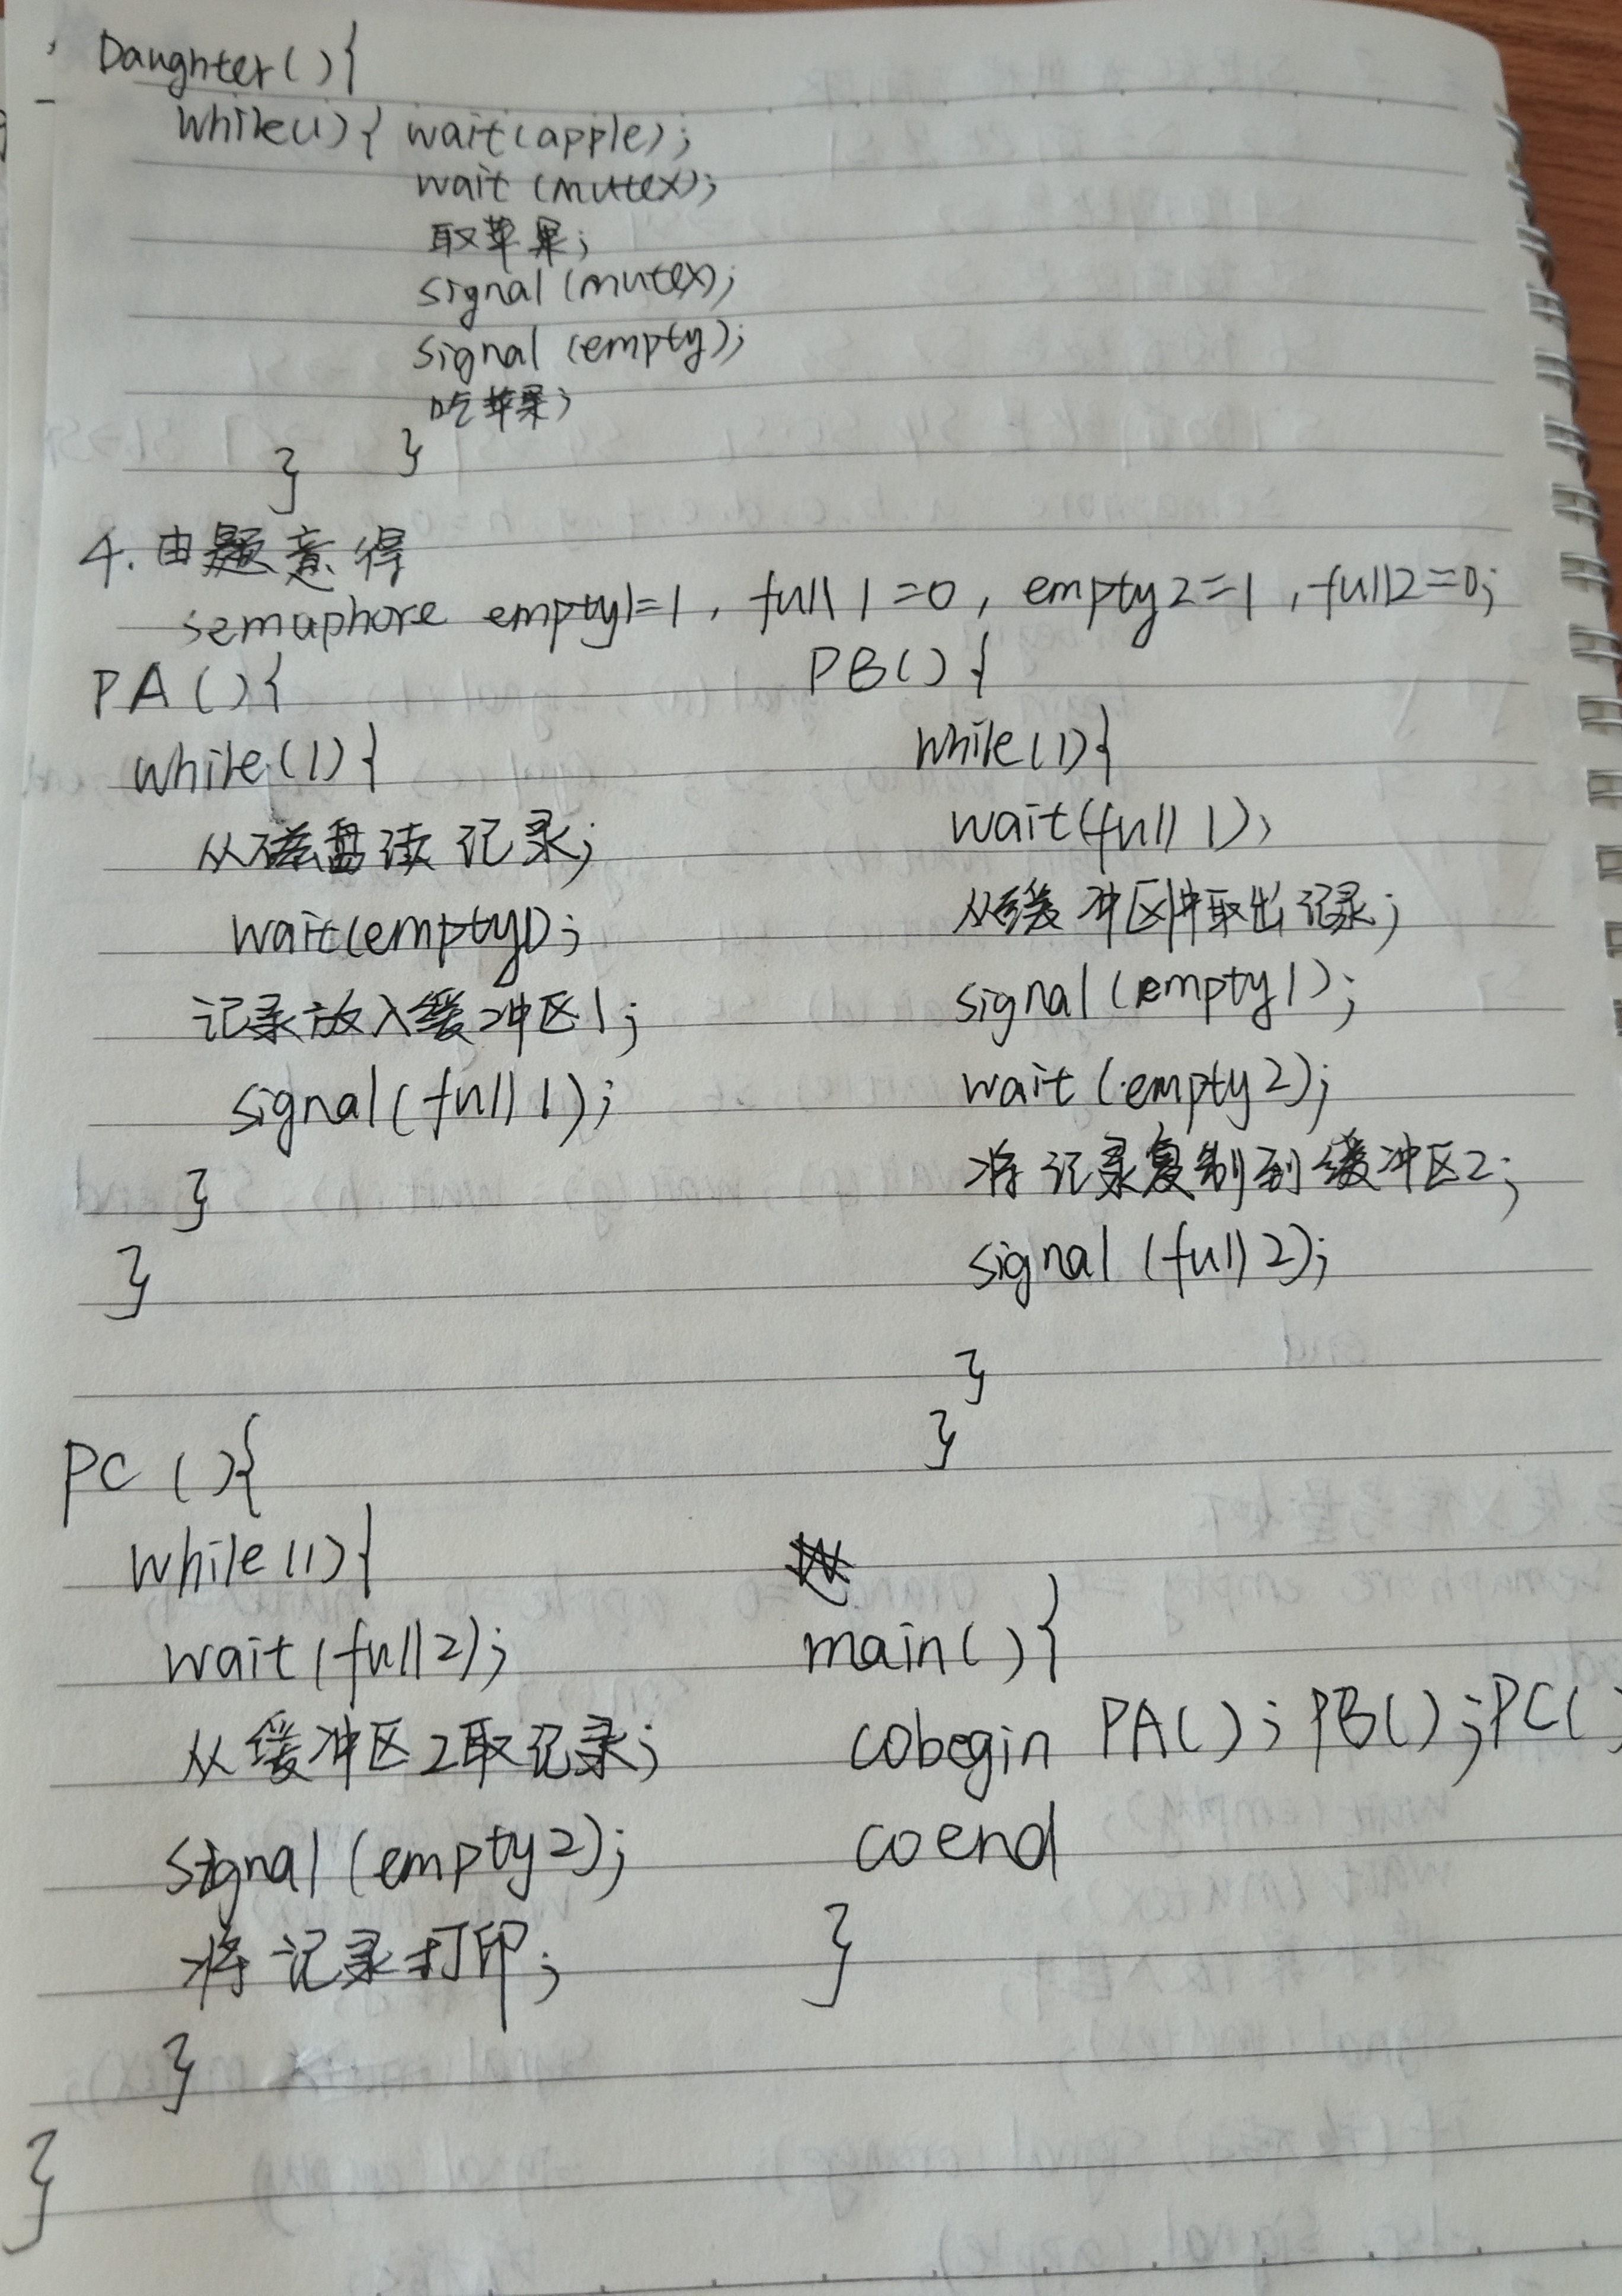 Daughter(){
while(1){ wait(apple);
wait(mutex);
取苹果;
signal(mutex);
signal(empty);
吃苹果;
}
}
4.由题意得
semaphore empty1=1, full1=0, empty2=1, full2=0;
PA(){
while(1){
从磁盘读记录;
wait(empty1);
记录放入缓冲区1;
signal(full1);
}
}
PB(){
while(1){
wait(full1);
从缓冲区中取出记录;
signal(empty1);
wait(empty2);
将记录复制到缓冲区2;
signal(full2);
}
}
PC(){
while(1){
wait(full2);
从缓冲区2取记录;
signal(empty2);
将记录打印;
}
}
main(){
cobegin PA(); PB(); PC(
coend
}